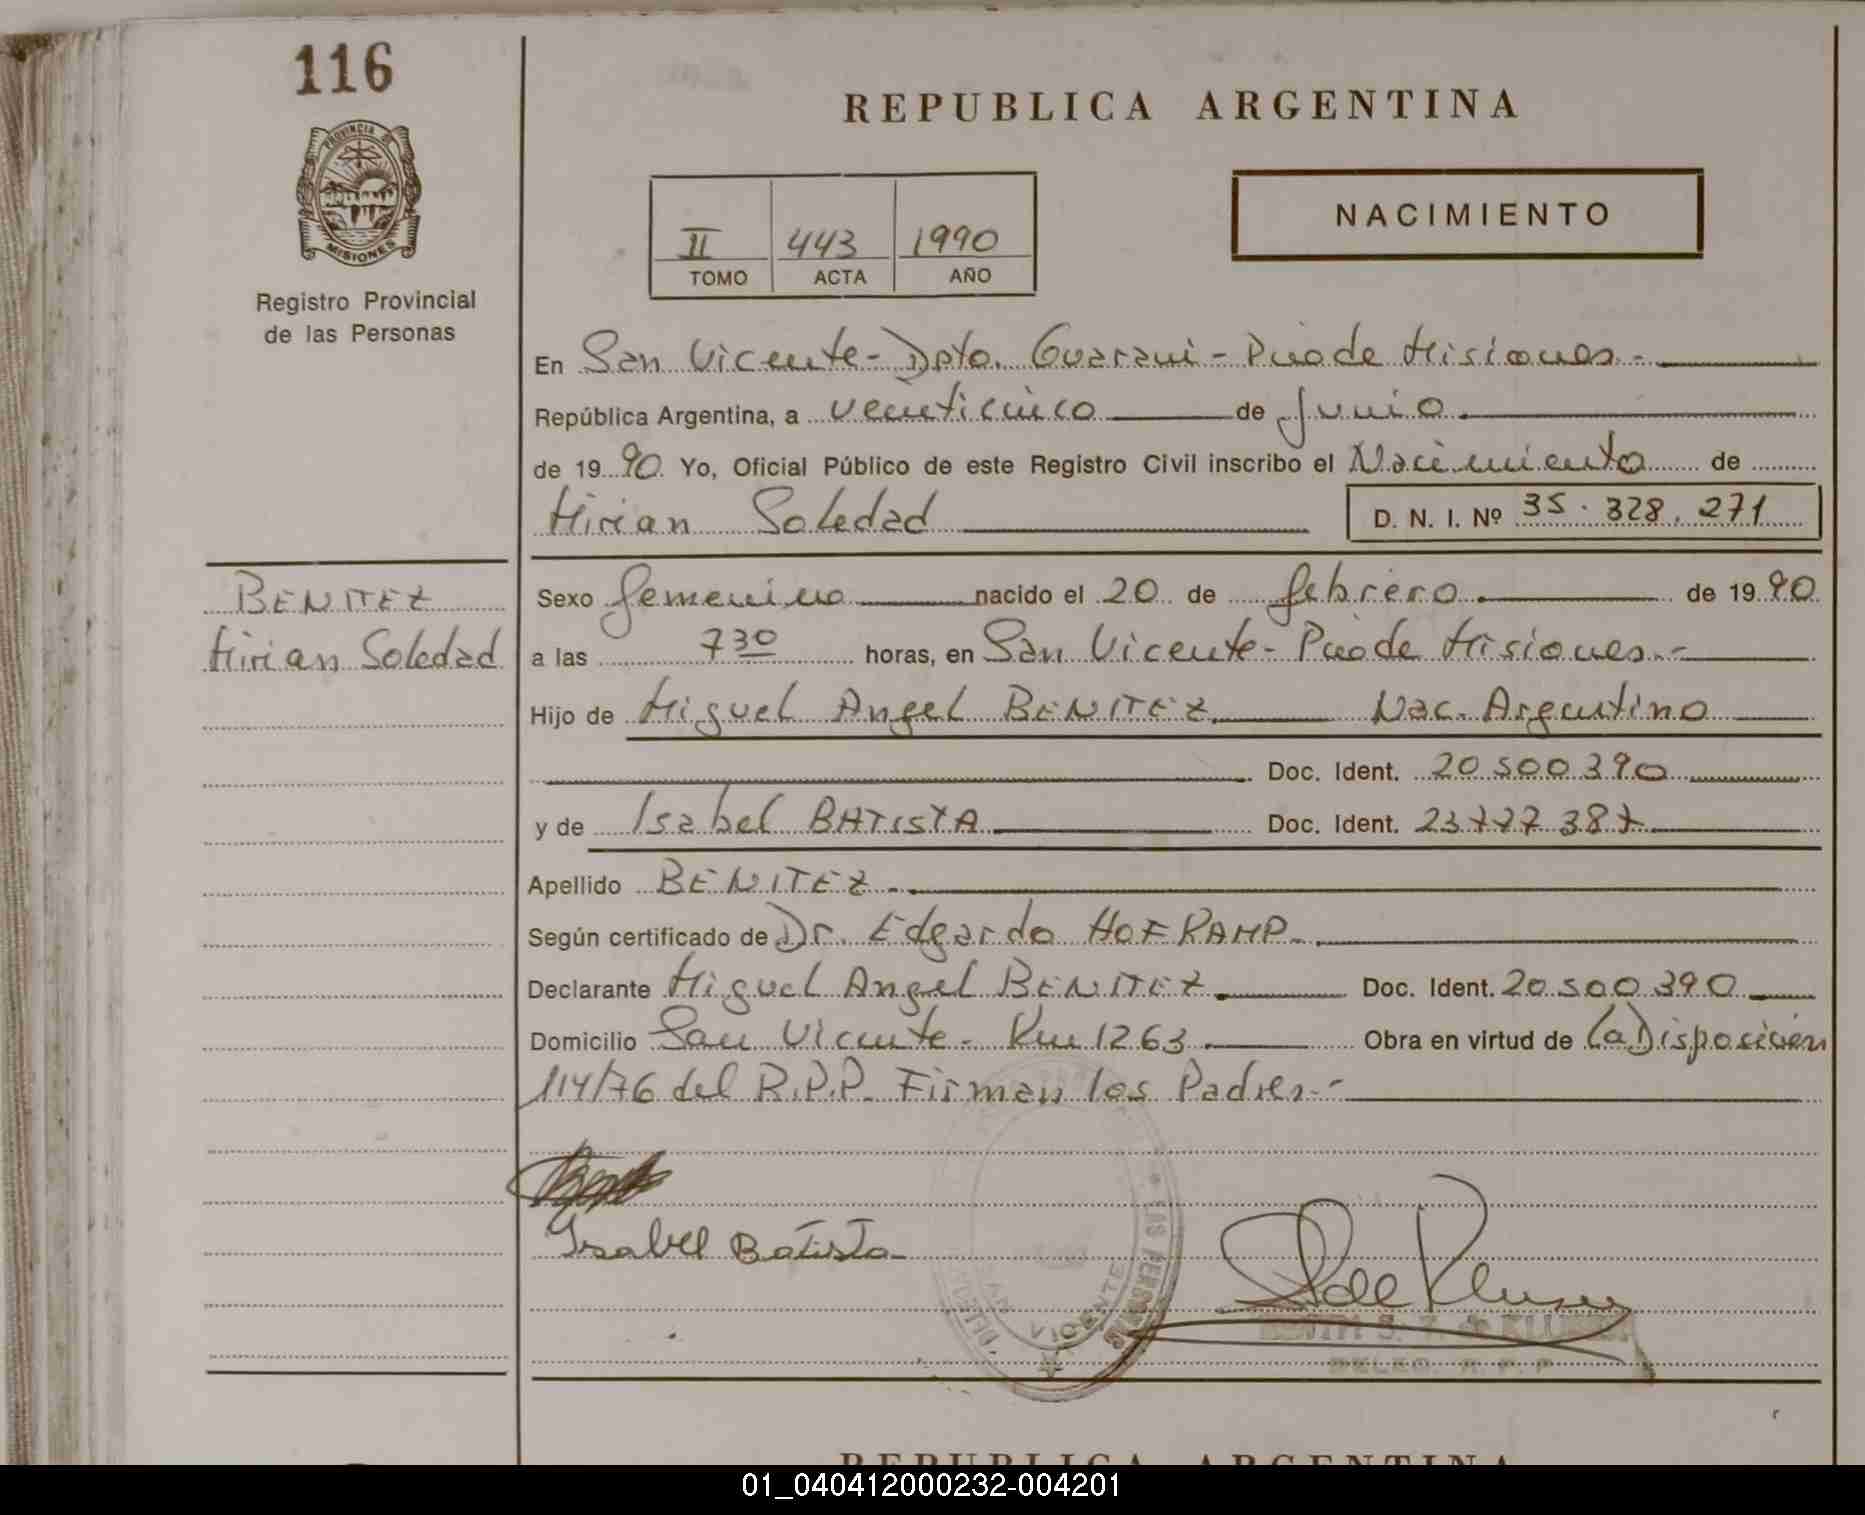 116
REPUBLICA ARGENTINA
PROVINCIA DE
MISIONES
NACIMIENTO
II 443 1990
TOMO ACTA AÑO
Registro Provincial
de las Personas
En San Vicente - Dpto. Guarani - Pcia de Misiones.-
República Argentina, a veinticinco de Junio
de 1990 Yo, Oficial Público de este Registro Civil inscribo el Nacimiento de
Mirian Soledad D. N. I. Nº 35.328.271
BENITEZ
Mirian Soledad
Sexo femenino nacido el 20 de febrero de 1990
a las 7 30 horas, en San Vicente - Pcia de Misiones.-
Hijo de Miguel Angel BENITEZ Nac. Argentino
Doc. Ident. 20 500 390
y de Isabel BATISTA Doc. Ident. 23777 387
Apellido BENITEZ.
Según certificado de Dr. Edgardo HOFKAMP.
Declarante Miguel Angel BENITEZ. Doc. Ident. 20 500 390
Domicilio San Vicente - Km 1263. Obra en virtud de la Disposición
114/76 del R.P.P. Firman los Padres.-
Isabel Batista
LAS PERSONAS
SAN VICENTE
DELEG. R. P. P
REPUBLICA ARGENTINA
01_040412000232-004201